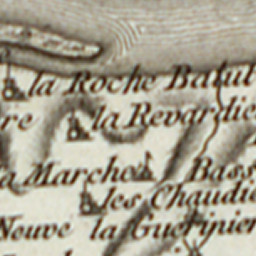 la Roche Balut
re la Revardie
a Marche Bass
les Chaudie
Neuve la Guerinier